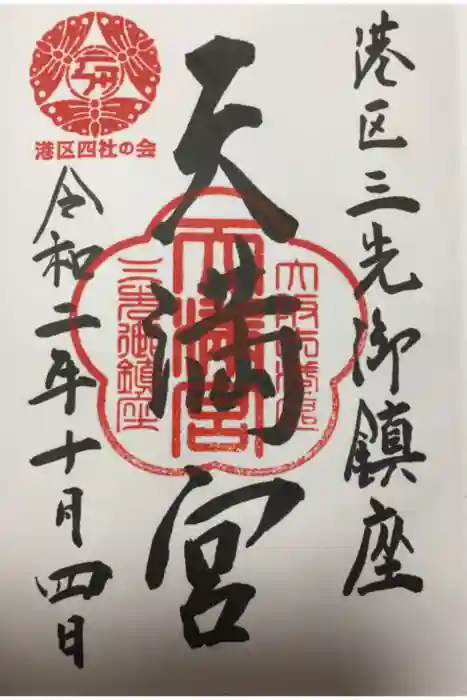 港区三先御鎮座
天満宮
天満宮
三先御鎮座
港区四社の会
令和二年十月四日